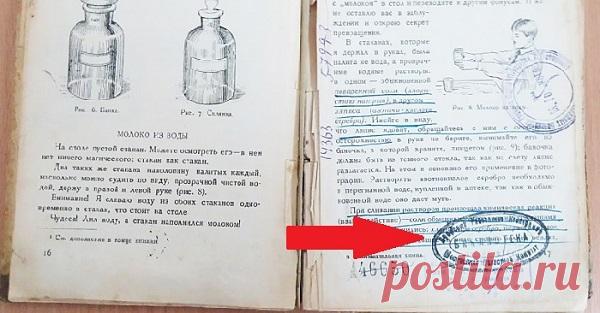 Рис. 6. Банка.
Рис. 7. Склянка.
МОЛОКО ИЗ ВОДЫ
На столе пустой стакан. Можете осмотреть его — в нем
нет ничего магического: стакан как стакан.
Два таких же стакана наполовину налитых каждый,
насколько можно судить по виду, прозрачной чистой во-
дой, держу в правой и левой руке (рис. 8).
Внимание! Я сливаю воду из обоих стаканов одно-
временно в стакан, что стоит на столе
Чудеса! Лил воду, а стакан наполнился молоком!
¹ См. дополнения в конце книги
16
с „молоком“ в стол и переводите к другим фокусам. Я
не оставлю вас в заблу-
ждении и открою секрет
превращения.
В стаканах, которые
я держал в руках, была
налита не вода, а прозрач-
ные водные растворы:
в одном — обыкновенной
поваренной соли
в другом
ляписа
серебра). Имейте в виду,
что ляпис ядовит, обращайтесь с ним с
осторожностью, в руки не берите, вынимайте из
баночки, в которой храните, пинцетом (рис. 9); баночка
должна быть из темного стекла, так как на свету ляпис
разлагается. На этом и основано его применение в фото-
графии. Растворять азотнокислое серебро необходимо
в перегнанной воде, купленной в аптеке, так как в обык-
новенной воде оно даст муть.
При сливании растворов произошла химическая реакция
Рис. 8. Молоко из воды.
БИБЛИОТЕКА
46630
17
postila.ru